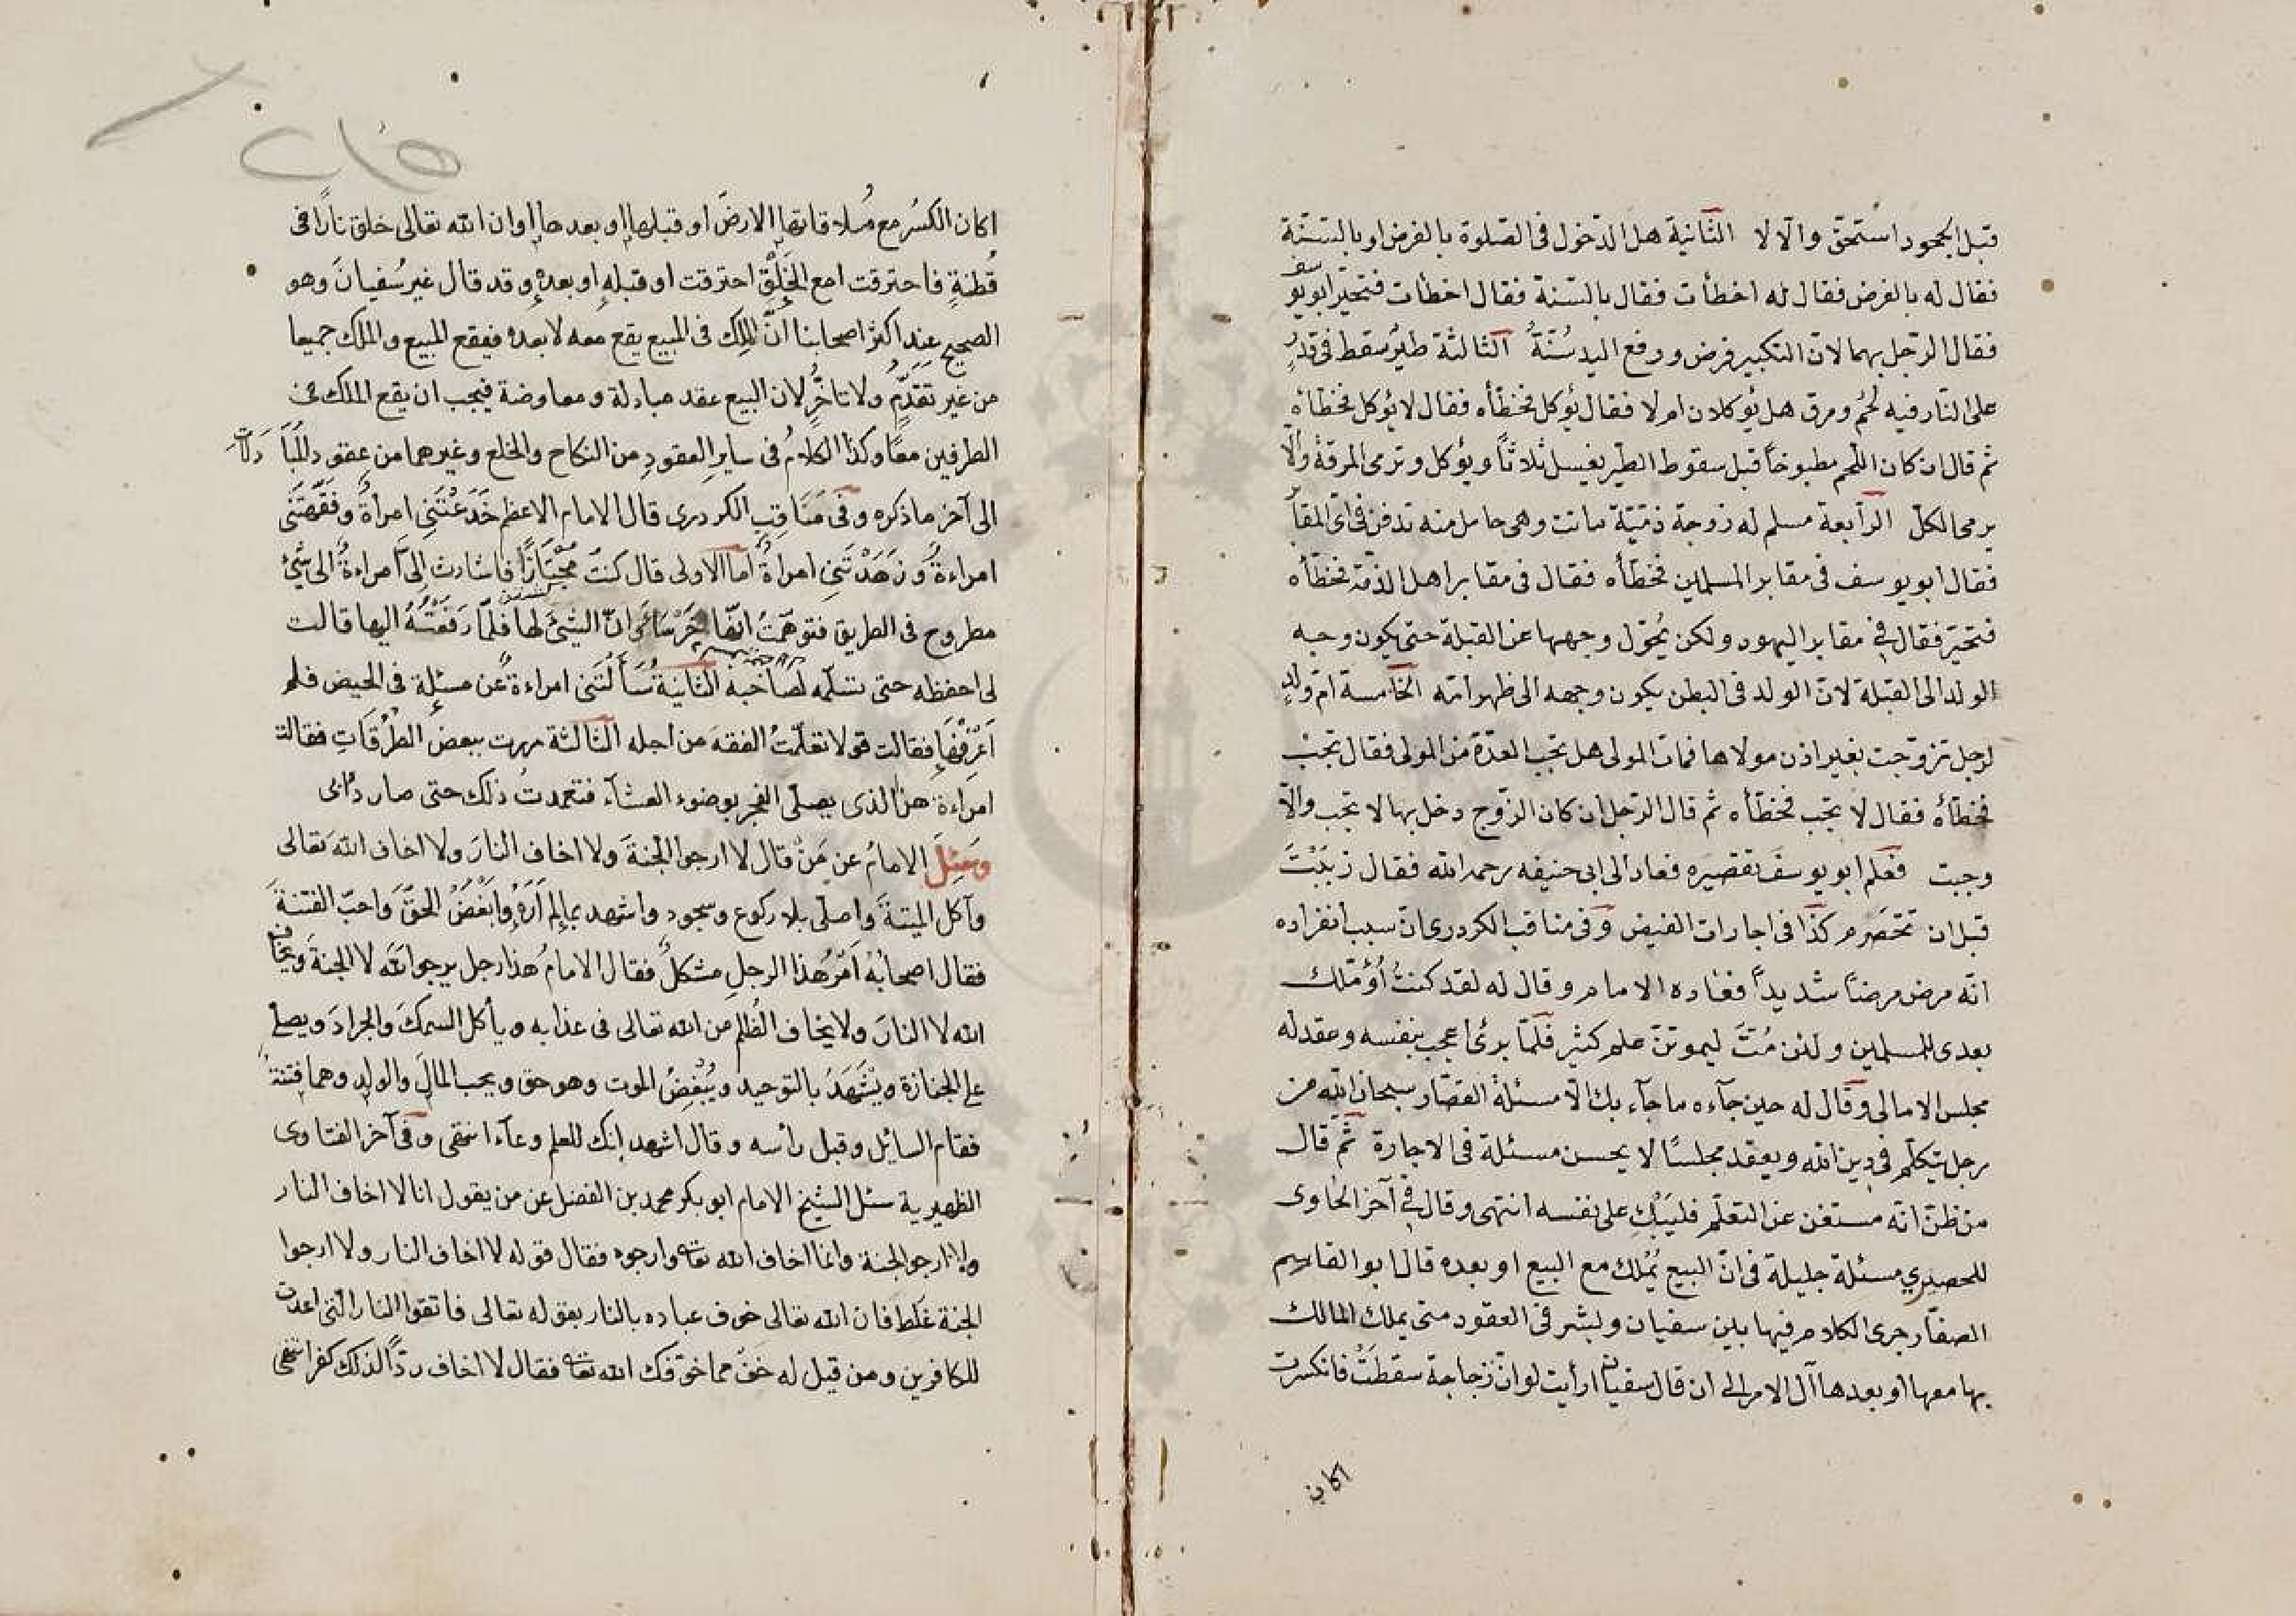 قبل الجحود استحق والا لا الثانية هل الدخول في الصلوة بالفرض او بالسنة
فقال له بالفرض فقال له اخطأت فقال بالسنة فقال اخطأت فتحير ابو يوسف
فقال الرجل بهما لان التكبير فرض ورفع اليد سُنّةٌ الثالثة طير سقط في قدر
على النار فيه لحم ومرق هل يؤكلان ام لا فقال يؤكل فخطّأه فقال لا يؤكل فخطأه
ثم قال ان كان اللحم مطبوخاً قبل سقوط الطير يغسل ثلاثاً ويؤكل وترمى المرقة والّا
يرمى الكل الرابعة مسلم له زوجة ذمّيّة ماتت وهى حامل منه تدفن في اى المقابر
فقال ابو يوسف فى مقابر المسلمين فخطّأه فقال فى مقابر اهل الذمّة فخطّأه
فتحيّر فقال في مقابر اليهود ولكن يُحوّل وجهها عن القبلة حتى يكون وجه
الولد الى القبلة لانّ الولد فى البطن يكون وجهه الى ظهر امّه الخامسة امّ ولدٍ
لرجل تزوّجت بغير اذن مولاها فمات المولى هل تجب العدّة من المولى فقال تجبْ
فخطّأه فقال لا تجب فخطّأه ثم قال الرّجل ان كان الزّوج دخل بها لا تجب والّا
وجبت فعلم ابو يوسف تقصيره فعاد الى ابى حنيفه رحمه الله فقال تزبّبْتَ
قبل ان تحصرم كذا فى اجارات الفيض وفى مناقب الكردرى انّ سبب انفراده
انّه مرض مرضاً شديداً فعاده الامام وقال له لقد كنتُ أُؤمّلك
بعدى للمسلمين ولئن مُتَّ ليموتنّ علم كثير فلمّا برئ اعجب بنفسه وعقد له
مجلس الامالى وقال له حين جآءه ما جآء بك الّا مسئلةُ القصّار سبحان الله من
رجل يتكلّم فى دين الله ويعقد مجلسًا لا يحسن مسئلة فى الاجارة ثمّ قال
من ظنّ انّه مستغن عن التعلّم فليبْكِ على نفسه انتهى وقال في آخر الحاوى
للحصيري مسئلة جليلة فى انّ البيع يُمْلك مع البيع او بعده قال ابو القاسم
الصفّار جرى الكلام فيها بين سفيان وبشر فى العقود متى يملك المالك
بها معها او بعدها آل الامر الى ان قال سفيان ارأيت لو انّ زجاجة سقطتْ فانكسرت
اكان
اكان الكسُر مع مُلاقاتها الارضَ او قبلها او بعدها او ان الله تعالى خلق نارًا فى
قُطنةٍ فاحترقت امع الخَلْق احترقت او قبله او بعده وقد قال غير سُفيان وهو
الصحيح عند اكثر اصحابنا انّ المِلك فى المبيع يقع معه لا بعده فيقع المبيع والملك جميعا
من غير تَقَدُّمٍ ولا تاخّرٍ لان البيع عقد مبادلة ومعاوضة فيجب ان يقع الملك فى
الطرفين معًا وكذا الكلامُ فى سايرِ العقودِ من النكاح والخلع وغيرهما من عقود المُبَادَلَات
الى آخر ما ذكره وفى مَنَاقِبِ الكردرى قال الامام الاعظم خَدَعْتَنِى امرأةٌ وفَقَّهَتَنى
امراءةٌ وزَهَدْتَنِى امراةٌ اما الاولى قال كنت مجْتَازًا فاشارت الى امراءةٌ الى شئ
مطروح فى الطريق فتوهّمتُ انّها خَرْسَاءُ وانّ الشئَ لها فلمّا رَفَعْتُهُ اليها قالت
لى احفظه حتى تسلّمه لصاحبه الثانية سَأَلَتْنى امراءةٌ عن مسئلة فى الحيض فلم
اَعْرِفْهَا فقالت قولا تعلّمتُ الفقهَ من اجله الثالثة مررت ببعض الطُّرُقَاتِ فقالت
امراءة هذا الذى يصلّى الفجر بوضوء العشآء فتعمدتُ ذلك حتى صار دأبى
وسُئِلَ الامامُ عن مَنْ قال لا ارجوا الجنةَ ولا اخاف النارَ ولا اخاف اللهَ تعالى
وآكل الميتةَ واصلّى بلا ركوع وسجود واشهد بما لم اَرَهُ وابغضُ الحقَّ واحبّ الفتنةَ
فقال اصحابُهُ امْرُ هذا الرجلِ مشكلٌ فقال الامامُ هذا رجل يرجوا اللهَ لا الجنةَ ويخاف
الله لا النارَ ولا يخاف الظُلمِ من الله تعالى فى عذابه ويأكل السمكَ والجرادَ ويصلى
على الجنازة ويَشْهَدُ بالتوحيد ويُبْغِضُ الموت وهو حق ويحب المالَ والولد وهما فتنةٌ
فقام السايل وقبل رأسه وقال اشهد انك للعلم وعآء انتهى وفى آخر الفتاوى
الظهيرية سئل الشيخ الامام ابو بكر محمد بن الفضل عن من يقول انا لا اخاف النار
ولا ارجو الجنة وانما اخاف الله تعالى وارجوه فقال قوله لا اخاف النار ولا ارجوا
الجنة غَلَط فان الله تعالى خوف عباده بالنار بقوله تعالى فاتقوا النار التى اعدت
للكافرين ومن قيل له خَفْ مما خوّفك الله تعالى فقال لا اخاف ردًّا لذلك كفر انتهى